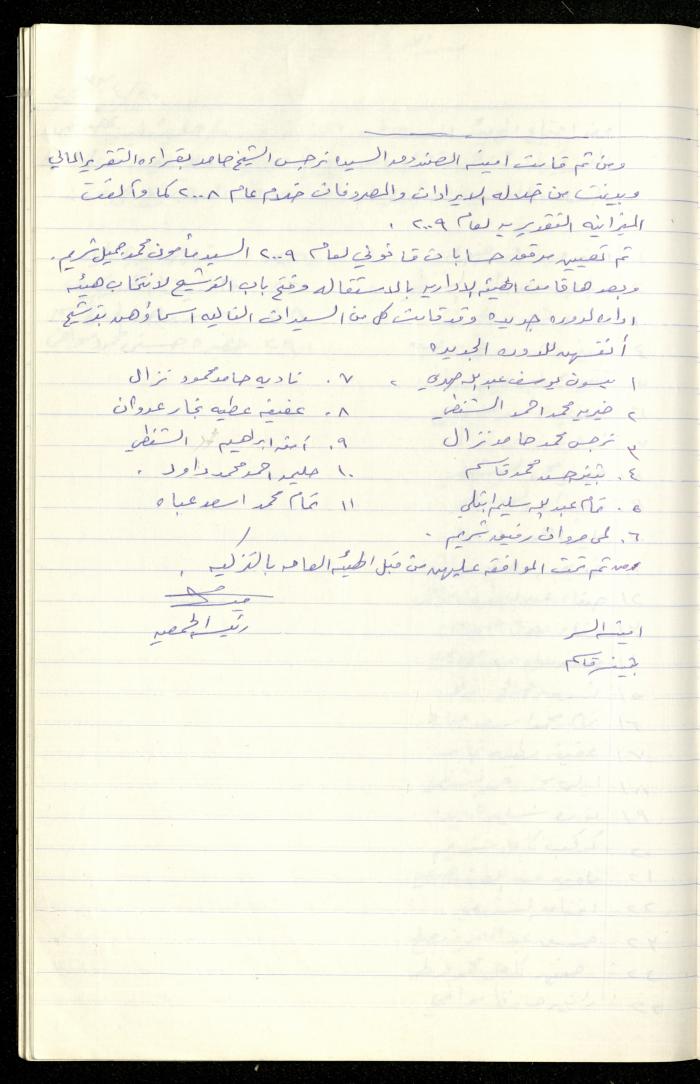 ومن ثم قامت امينه الصندوق السيده نرجس الشيخ حامد بقراءه التقرير المالي
وبينت من خلاله الايرادات والمصروفات خلال عام ٢٠٠٨ كما وألقت
الميزانيه التقديريه لعام ٢٠٠٩ .
تم تعيين مدقق حسابات قانوني لعام ٢٠٠٩ السيد مأمون محمد جميل شريم .
وبعدها قامت الهيئه الاداريه بالاستقاله وفتح باب الترشيح لانتخاب هيئه
اداره لدوره جديده وقد قامت كل من السيدات التاليه اسماؤهن بترشيح
أنفسهن للدوره الجديده
١ ميسون يوسف عبد الله مهدي .
٢ خيريه محمد احمد الشنطي
٣ نرجس محمد حامد نزال
٤. بثينه حسن محمد قاسم
٥. تمام عبد الله سليم
٦. لمى مروان رفيق شريم .
٧. ناديه حامد محمود نزال
٨. عفيفه عطيه نجار عدوان
٩. آمنه ابراهيم الشنطي
١٠. حليمه احمد محمد داود .
١١ تمام محمد اسعد عباه
ومن تم تمت الموافقه عليهن من قبل الهيئه العامه بالتزكيه .
امينه السر
رئيسه الجمعيه
بثينه قاسم